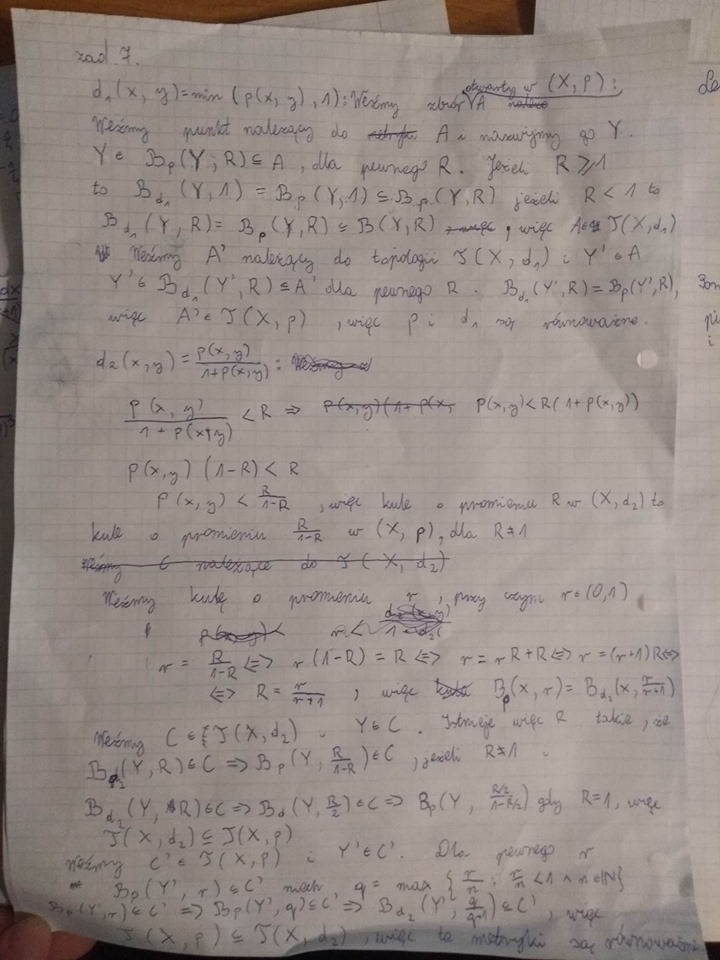 zad. 7.
d₁(x, y) = min(ρ(x, y), 1): Weźmy zbiór A otwarty w (X, ρ):
Weźmy punkt należący do A i nazwijmy go Y.
Y ∈ B_ρ(Y, R) ⊆ A, dla pewnego R. Jeżeli R ⩾ 1
to B_d₁(Y, 1) = B_ρ(Y, 1) ⊆ B_ρ(Y, R) jeżeli R < 1 to
B_d₁(Y, R) = B_ρ(Y, R) ⊆ B(Y, R), więc A ∈ T(X, d₁)
Weźmy A' należący do topologii T(X, d₁) i Y' ∈ A
Y' ∈ B_d₁(Y', R) ⊆ A' dla pewnego R. B_d₁(Y', R) = B_ρ(Y', R),
więc A' ∈ T(X, ρ), więc ρ i d₁ są równoważne.
d₂(x, y) = ρ(x, y)/(1+ρ(x, y)):
ρ(x, y)/(1 + ρ(x, y)) < R ⇒ ρ(x, y) < R(1 + ρ(x, y))
ρ(x, y) (1-R) < R
ρ(x, y) < R/(1-R), więc kule o promieniu R w (X, d₂) to
kule o promieniu R/(1-R) w (X, ρ), dla R ≠ 1
Weźmy C należące do T(X, d₂)
Weźmy kulę o promieniu r, przy czym r ∈ (0, 1)
r = R/(1-R) ⇔ r(1-R) = R ⇔ r = rR + R ⇔ r = (r+1)R ⇔
⇔ R = r/(r+1), więc B_ρ(x, r) = B_d₂(x, r/(r+1))
Weźmy C ∈ T(X, d₂) i Y ∈ C. Istnieje więc R takie, że
B_d₂(Y, R) ⊆ C ⇒ B_ρ(Y, R/(1-R)) ⊆ C, jeżeli R ≠ 1.
B_d₂(Y, R) ⊆ C ⇒ B_d(Y, R/2) ⊆ C ⇒ B_ρ(Y, (R/2)/(1-R/2)) gdy R = 1, więc
T(X, d₂) ⊆ T(X, ρ)
Weźmy C' ∈ T(X, ρ) i Y' ∈ C'. Dla pewnego r
B_ρ(Y', r) ⊆ C' niech q = max {r/n : r/n < 1 ∧ n ∈ ℕ}
B_ρ(Y', r) ⊆ C' ⇒ B_ρ(Y', q) ⊆ C' ⇒ B_d₂(Y', q/(q+1)) ⊆ C', więc
T(X, ρ) ⊆ T(X, d₂), więc te metryki są równoważne